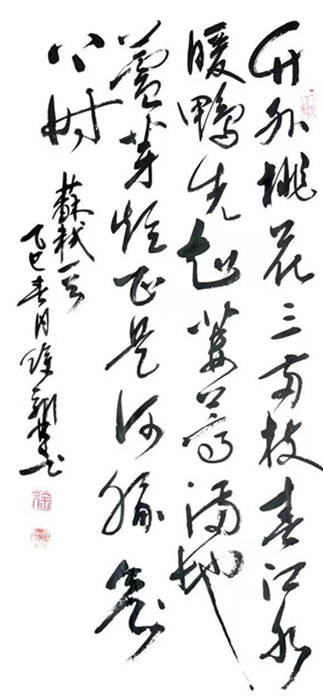 竹外桃花三两枝春江水
暖鸭先知蒌蒿满地
蘆芽短正是河豚欲
上时
蘇軾一首
乙巳春月徐新书